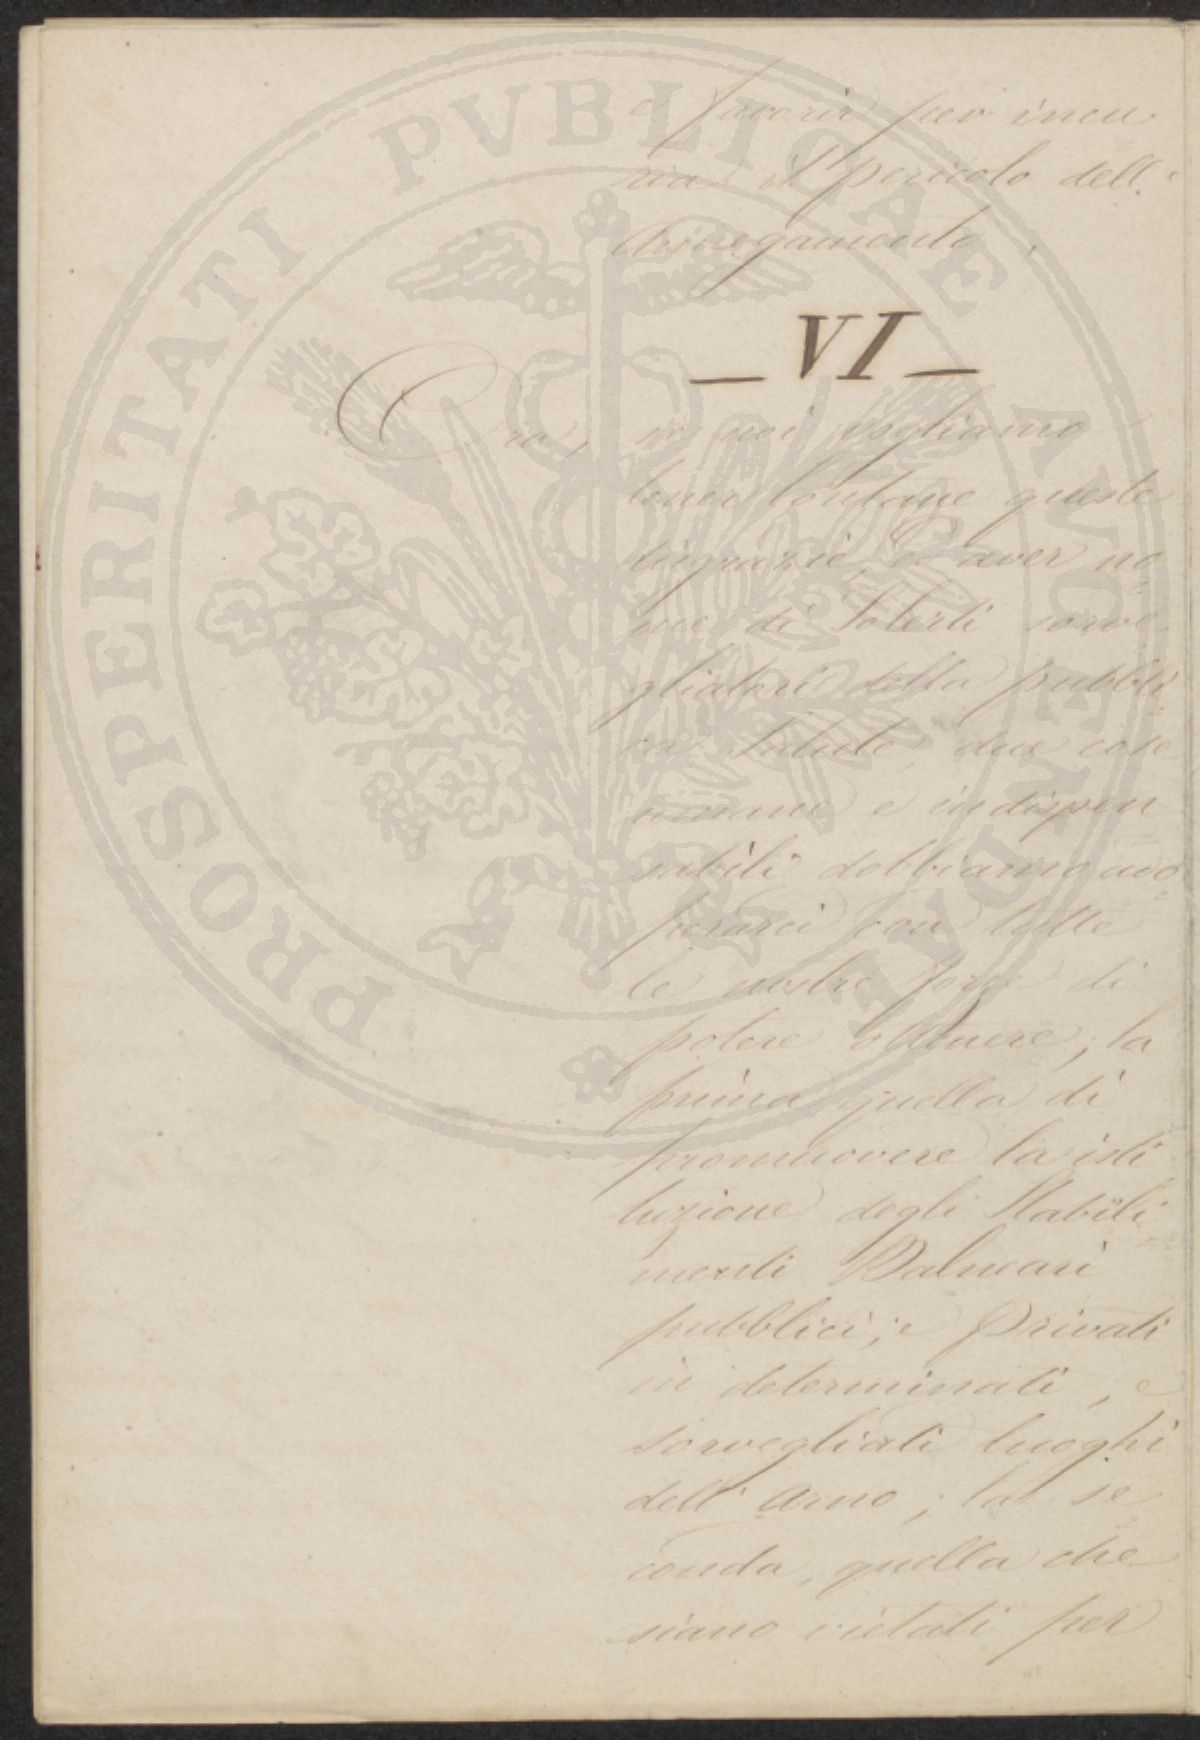 a favorir per incu
ria il pericolo dell'
Annegamento.
— VI —
Ora, se noi vogliamo
tener lontane queste
disgrazie, ed aver no
me di Solerti sorve
gliatori della pubbli
ca Salute, due cose
umane e indispen
sabili dobbiamo ado
perarci con tutte
le nostre forze di
potere ottenere; la
prima quella di
promuovere la isti
tuzione degli Stabili
menti Balneari
pubblici, e Privati
in determinati, e
sorvegliati luoghi
dell'Arno; la se
conda, quella che
siano vietati per
PROSPERITATI PVBLICAE AVGENDAE